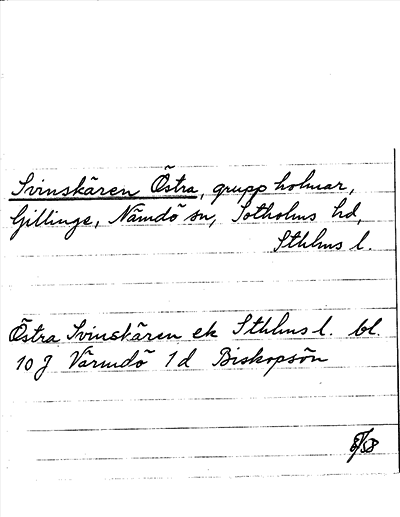 Svinskären Östra, grupp holmar,
Gillinge, Nämdö sn, Sotholms hd,
Sthlms l.
Östra Svinskären ek Sthlms l. bl.
10 J Värmdö 1 d Biskopsön